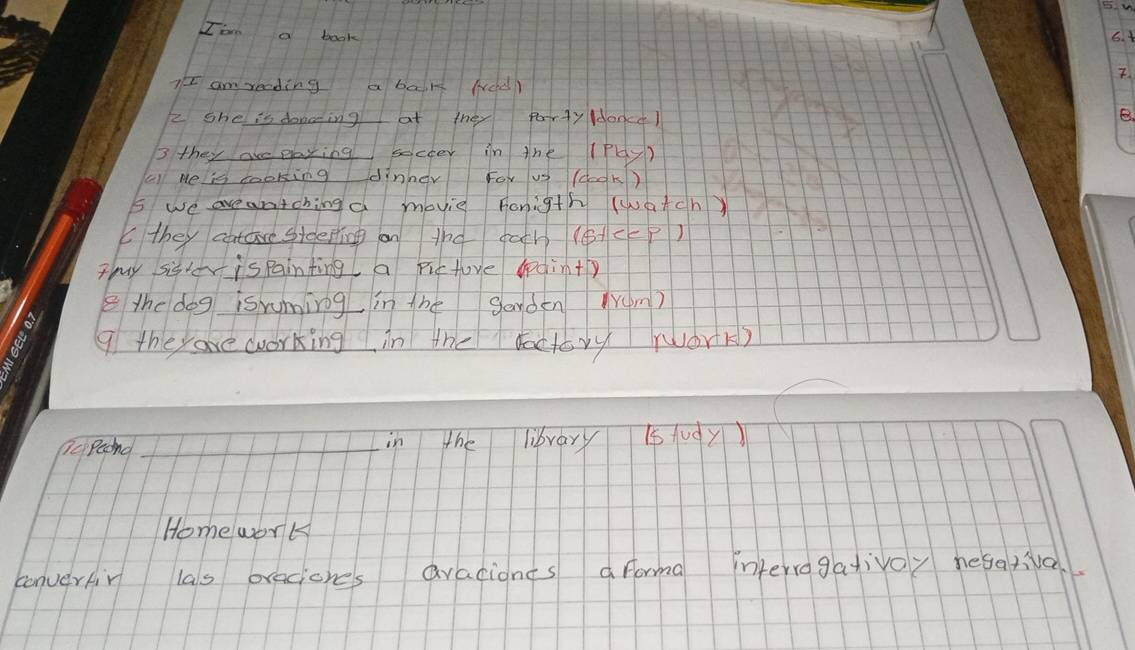 I am a book
1 I am reading a book (read)
2 She is dancing at they party (dance)
3 they are playing soccer in the (Play)
4) He is cooking dinner For us (cook)
5 we are watching a movie tonigth (watch)
6 they are sleeping on the (sleep)
7 my sister is painting a picture (paint)
8 the dog is runing in the garden (run)
9 they are working in the factory (work)
10) in the library (study)
Homework
convertir las oraciones a forma interrogativa y negativa.
5.
6.
7.
8.
GEL 0.7